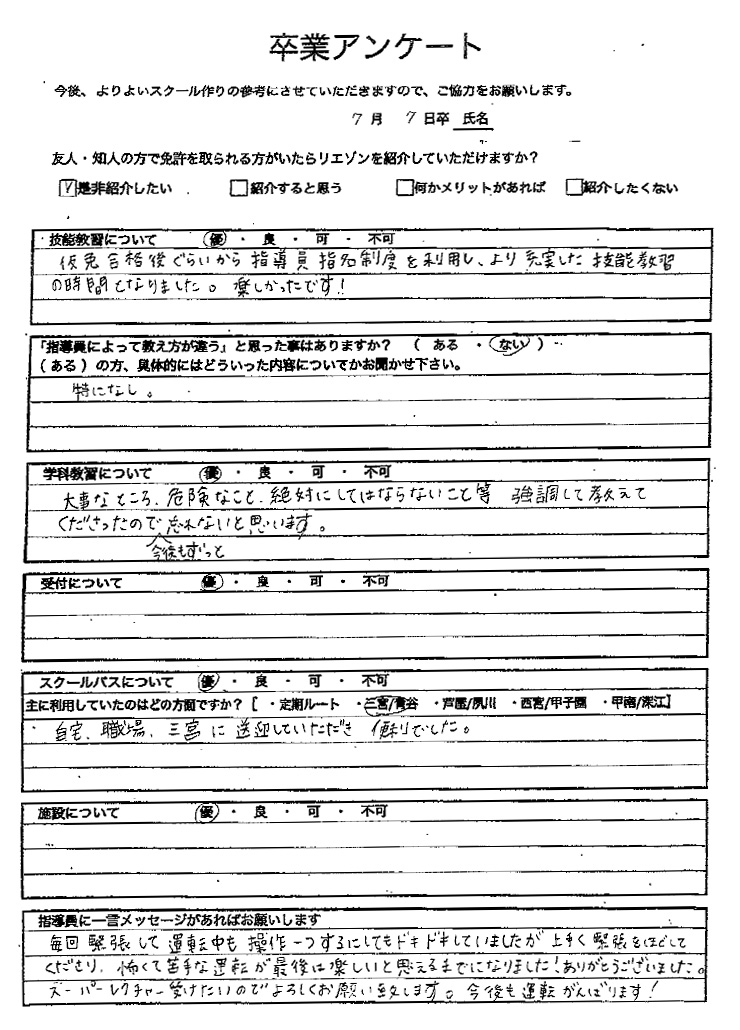 卒業アンケート
今後、よりよいスクール作りの参考にさせていただきますので、ご協力をお願いします。
7月 7日卒 氏名
友人・知人の方で免許を取られる方がいたらリエゾンを紹介していただけますか?
是非紹介したい 紹介すると思う 何かメリットがあれば 紹介したくない
技能教習について 優 ・ 良 ・ 可 ・ 不可
仮免合格後ぐらいから指導員指名制度を利用し、より充実した技能教習
の時間となりました。楽しかったです!
「指導員によって教え方が違う」と思った事はありますか? ( ある ・ ない )
( ある ) の方、具体的にはどういった内容についてかお聞かせ下さい。
特になし。
学科教習について 優 ・ 良 ・ 可 ・ 不可
大事なところ、危険なこと、絶対にしてはならないこと等 強調して教えて
くださったので忘れないと思います。
今後もずっと
受付について 優 ・ 良 ・ 可 ・ 不可
スクールバスについて 優 ・ 良 ・ 可 ・ 不可
主に利用していたのはどの方面ですか? [ ・定期ルート ・三宮/青谷 ・芦屋/夙川 ・西宮/甲子園 ・甲南/深江]
自宅、職場、三宮に送迎していただき 便利でした。
施設について 優 ・ 良 ・ 可 ・ 不可
指導員に一言メッセージがあればお願いします
毎回緊張して運転中も操作一つするにしてもドキドキしていましたが上手く緊張をほぐして
くださり、怖くて苦手な運転が最後は楽しいと思えるまでになりました!ありがとうございました。
スーパーレクチャー受けたいのでよろしくお願い致します。今後も運転がんばります!